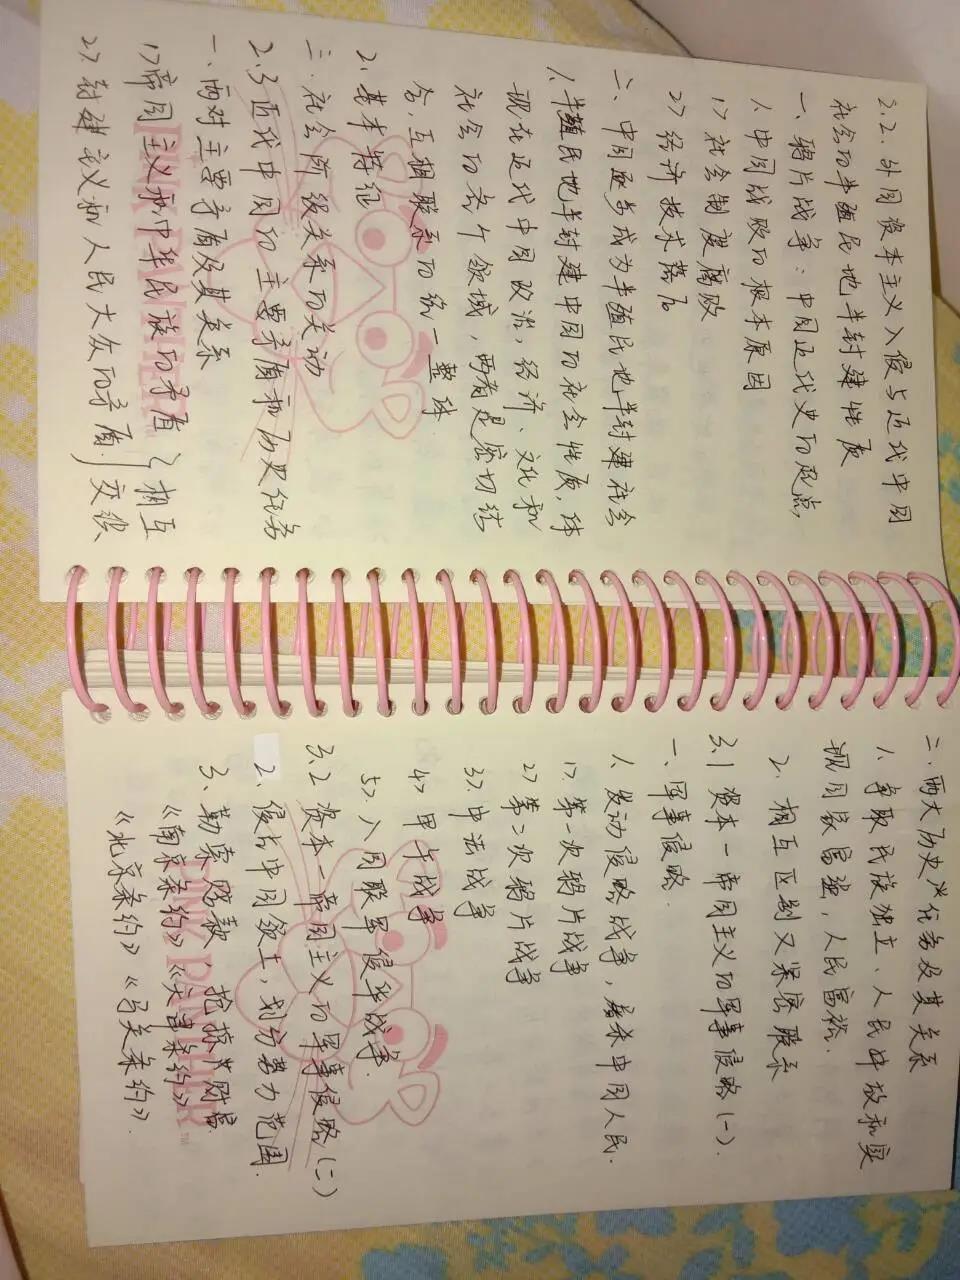 2.2. 外国资本主义入侵与近代中国
社会的半殖民地半封建性质
一、鸦片战争：中国近代史的起点，
1. 中国战败的根本原因
1> 社会制度腐败
2> 经济技术落后
二、中国逐步成为半殖民地半封建社会
1. 半殖民地半封建中国的社会性质，体
现在近代中国政治，经济、文化和
社会的各个领域，两者是密切结
合，互相联系的统一整体
2. 基本特征
三、社会阶级关系的变动
2.3 近代中国的主要矛盾和历史任务
一、两对主要矛盾及其关系
1> 帝国主义和中华民族的矛盾 } 相互
2> 封建主义和人民大众的矛盾. 交织
PINK PANTHER
二、两大历史性任务及其关系
1. 争取民族独立、人民解放和实
现国家富强，人民富裕.
2. 相互区别又紧密联系
3.1 资本一帝国主义的军事侵略(一)
一、军事侵略.
1. 发动侵略战争，屠杀中国人民.
1> 第一次鸦片战争
2> 第二次鸦片战争
3> 中法战争
4> 甲午战争
5> 八国联军侵华战争.
3.2 资本一帝国主义的军事侵略(二)
2. 侵占中国领土，划分势力范围.
3、勒索赔款 抢掠财富
《南京条约》《天津条约》
《北京条约》《马关条约》
PINK PANTHER TM